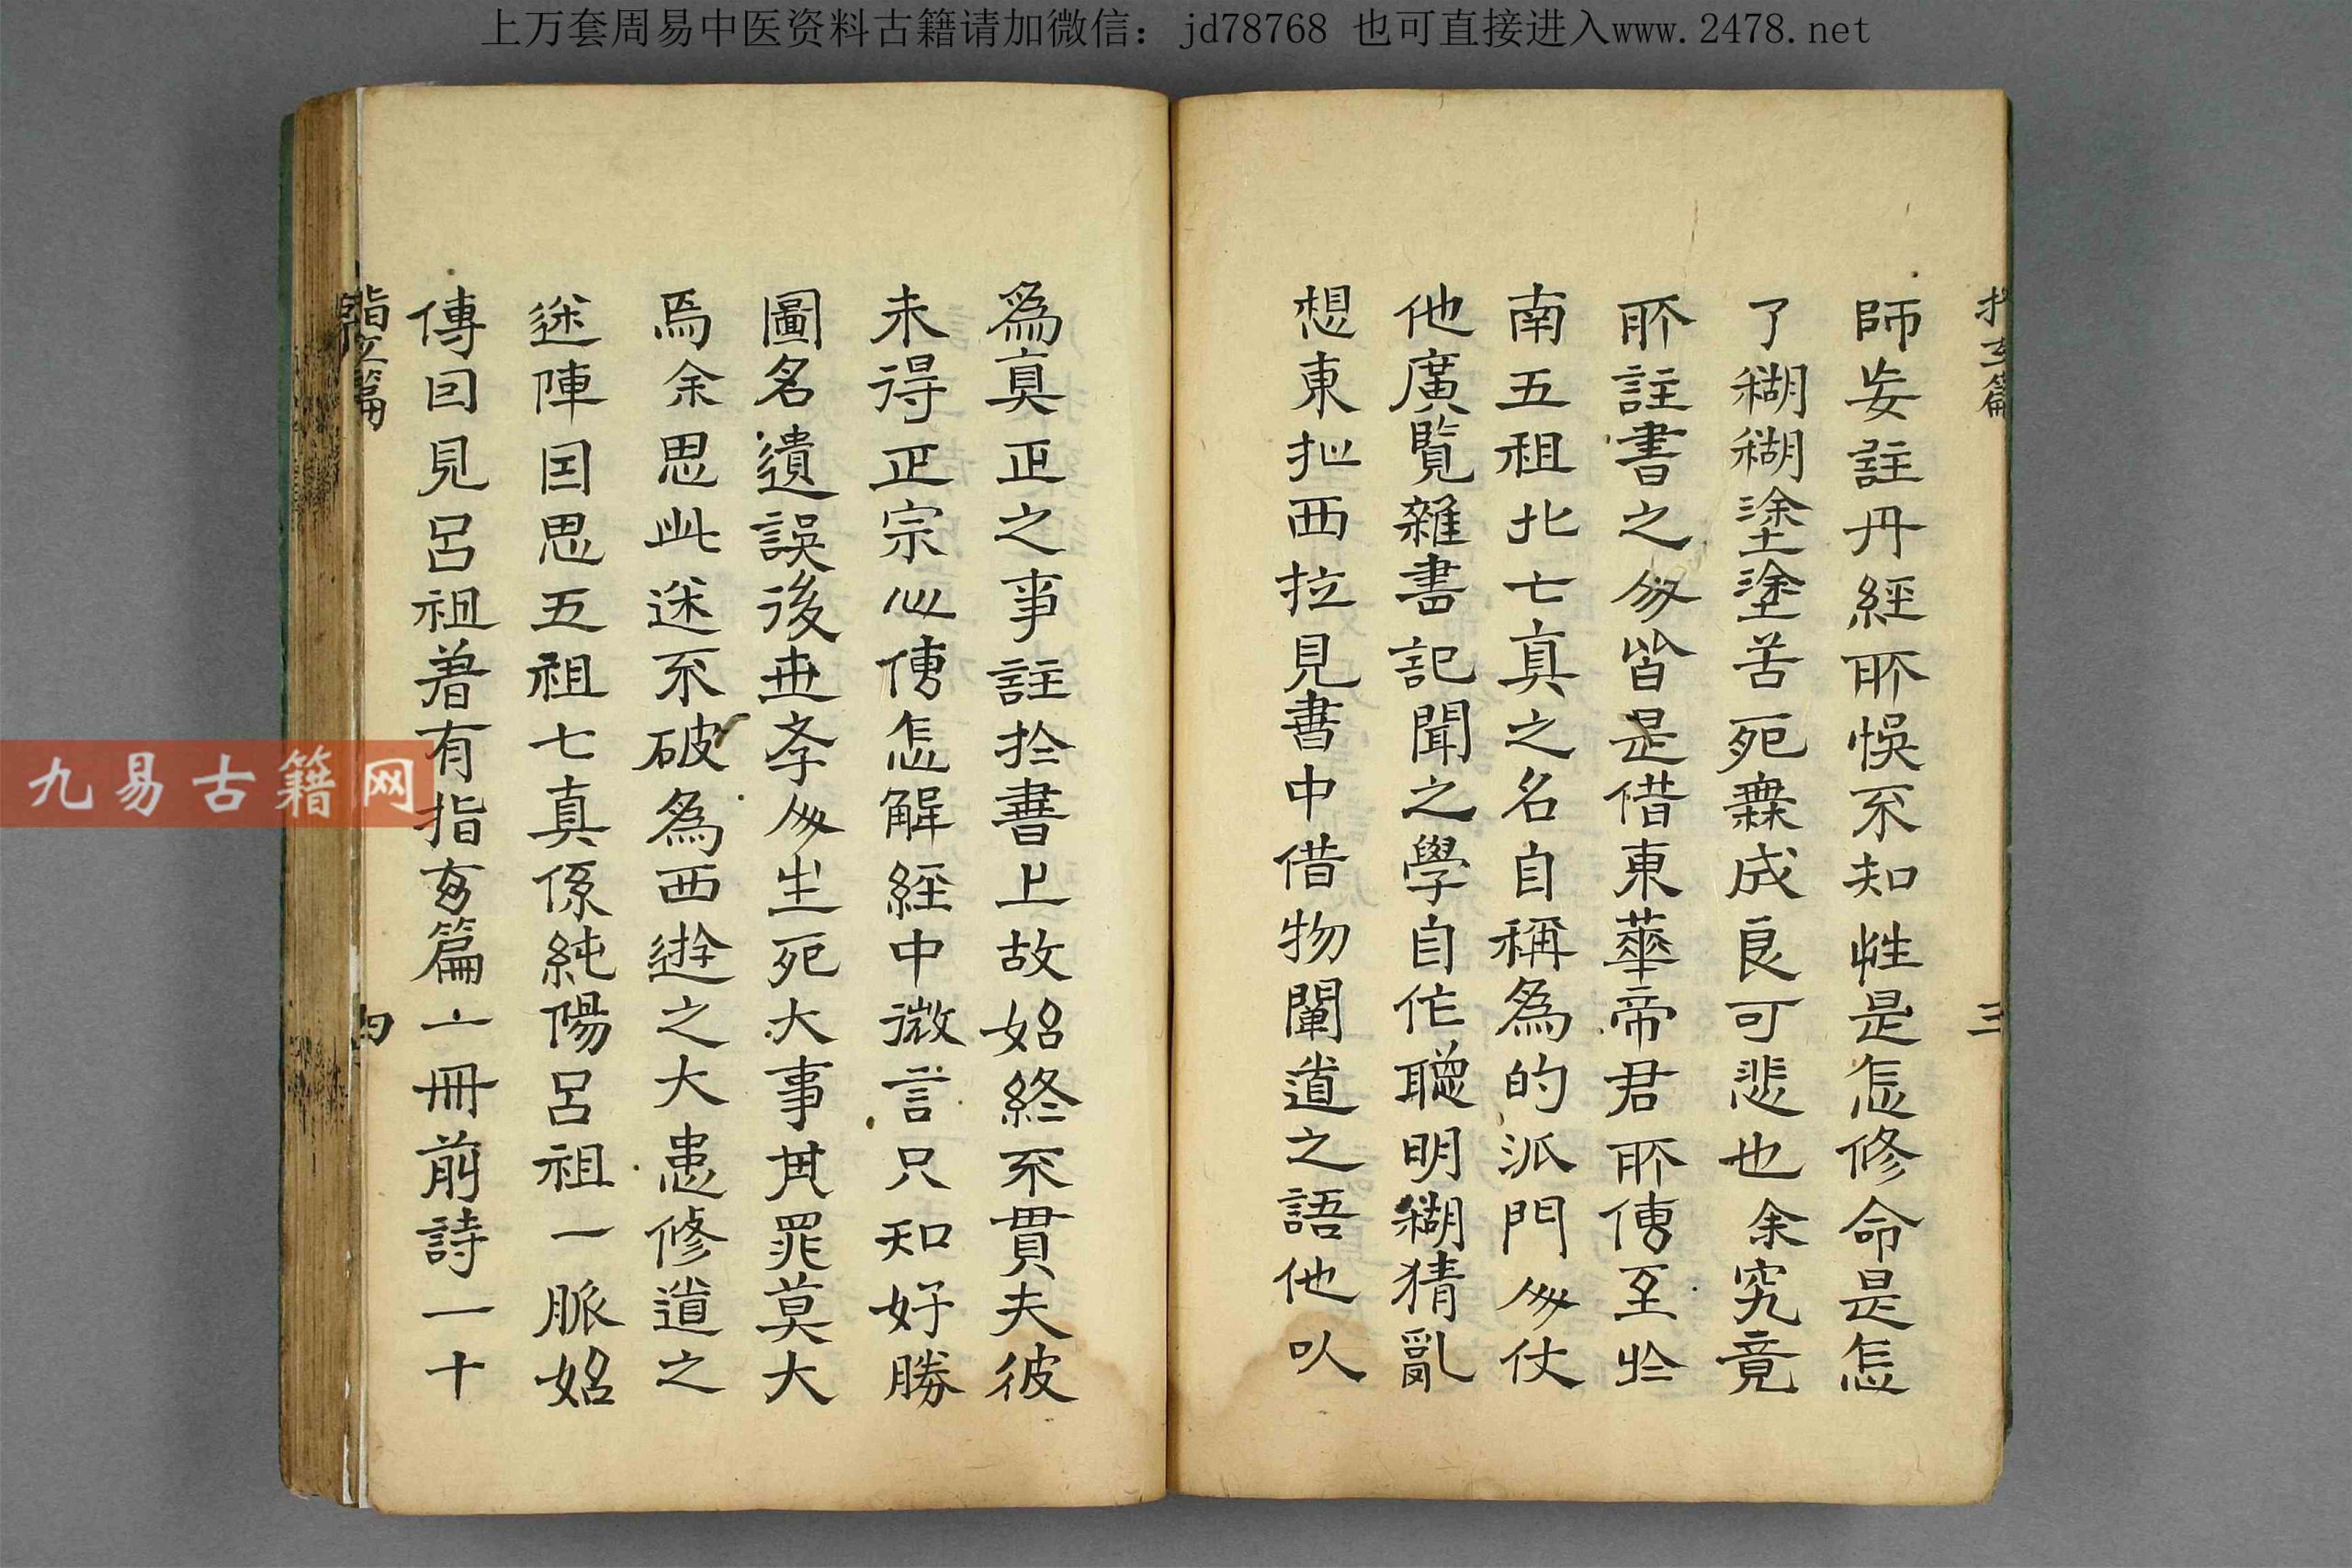 上万套周易中医资料古籍请加微信：jd78768 也可直接进入www.2478.net
師妄註丹經所悞不知性是怎修命是怎
了糊糊塗塗苦死無成良可悲也余究竟
所註書之人皆是借東華帝君所傳至於
南五祖北七真之名自稱為的派門人仗
他廣覧雜書記聞之學自作聰明糊猜亂
想東扯西拉見書中借物闡道之語他以
三
為真正之事註於書上故始終不貫夫彼
未得正宗心傳怎解經中微言只知好勝
圖名遺誤後世孝人生死大事其罪莫大
焉余思此迷不破為西遊之大患修道之
迷陣因思五祖七真係純陽呂祖一脈始
傳因見呂祖著有指玄篇一冊前詩一十
指玄篇
四
九易古籍网